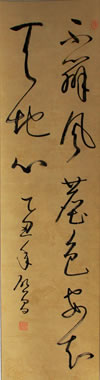 不辨風塵色安知
天地心
乙丑年